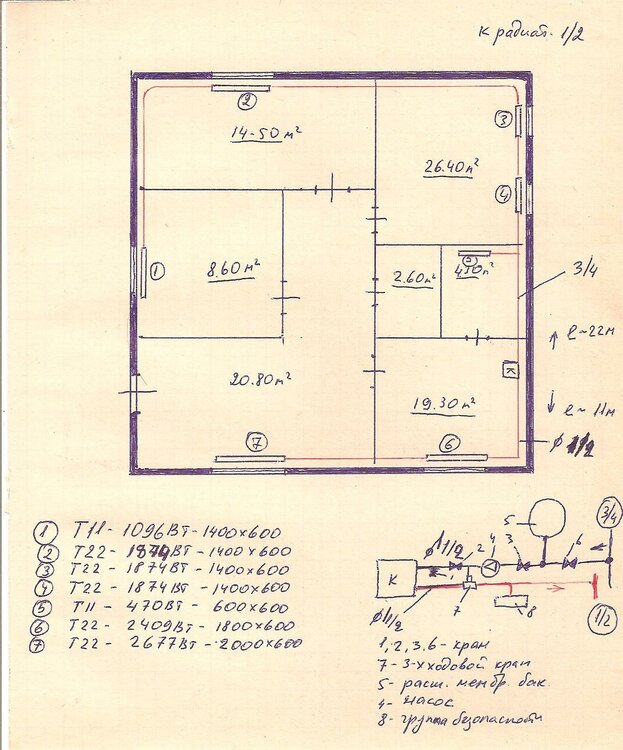 к радиат. 1/2
2
14-50 м²
3
26.40 м²
4
1
8.60 м²
2.60 м²
5
3/4
ℓ~22м
20.80 м²
К
19.30 м²
ℓ~11м
7
6
ф 1/2
1 Т11 - 1096Вт - 1400х600
2 Т22 - 1874Вт - 1400х600
3 Т22 - 1874Вт - 1400х600
4 Т22 - 1874Вт - 1400х600
5 Т11 - 470Вт - 600х600
6 Т22 - 2409Вт - 1800х600
7 Т22 - 2677Вт - 2000х600
5
3/4
ф1 1/2
2
4
3
6
К
1
7
8
ф1 1/2
1/2
1,2,3,6 - кран
7 - 3-х ходовой кран
5 - расш. мембр. бак.
4 - насос
8 - группа безопасности